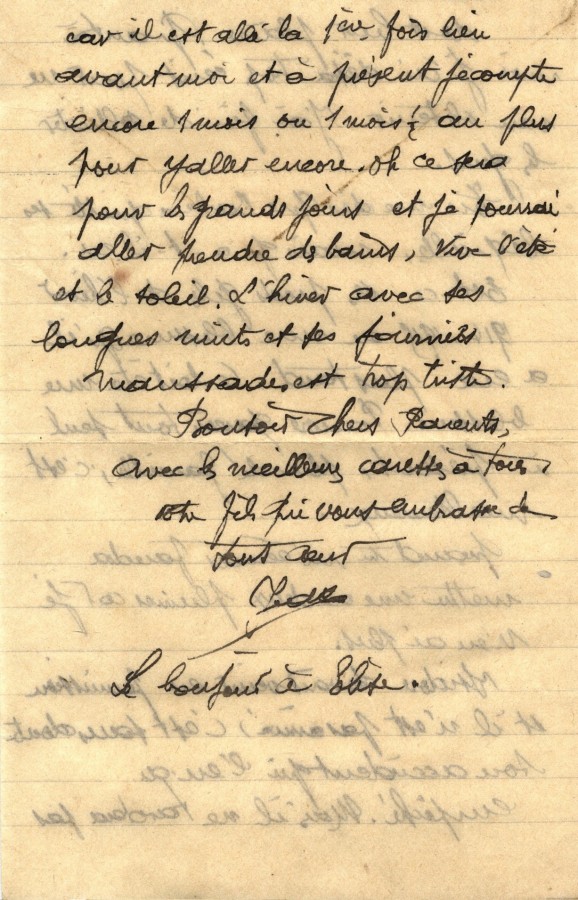 car il est allé la 1ère fois bien
avant moi et à présent je compte
encore 1 mois ou 1 mois ½ au plus
pour y aller encore. Oh ce sera
pour les grands jours et je pourrai
aller prendre des bains, Vive l'été
et le soleil. L'hiver avec ses
longues nuits et ses journées
maussades est trop triste.
Bonsoir Chers Parents,
avec les meilleures caresses à tous.
votre fils qui vous embrasse de
tout cœur
Le bonjour à Elise.